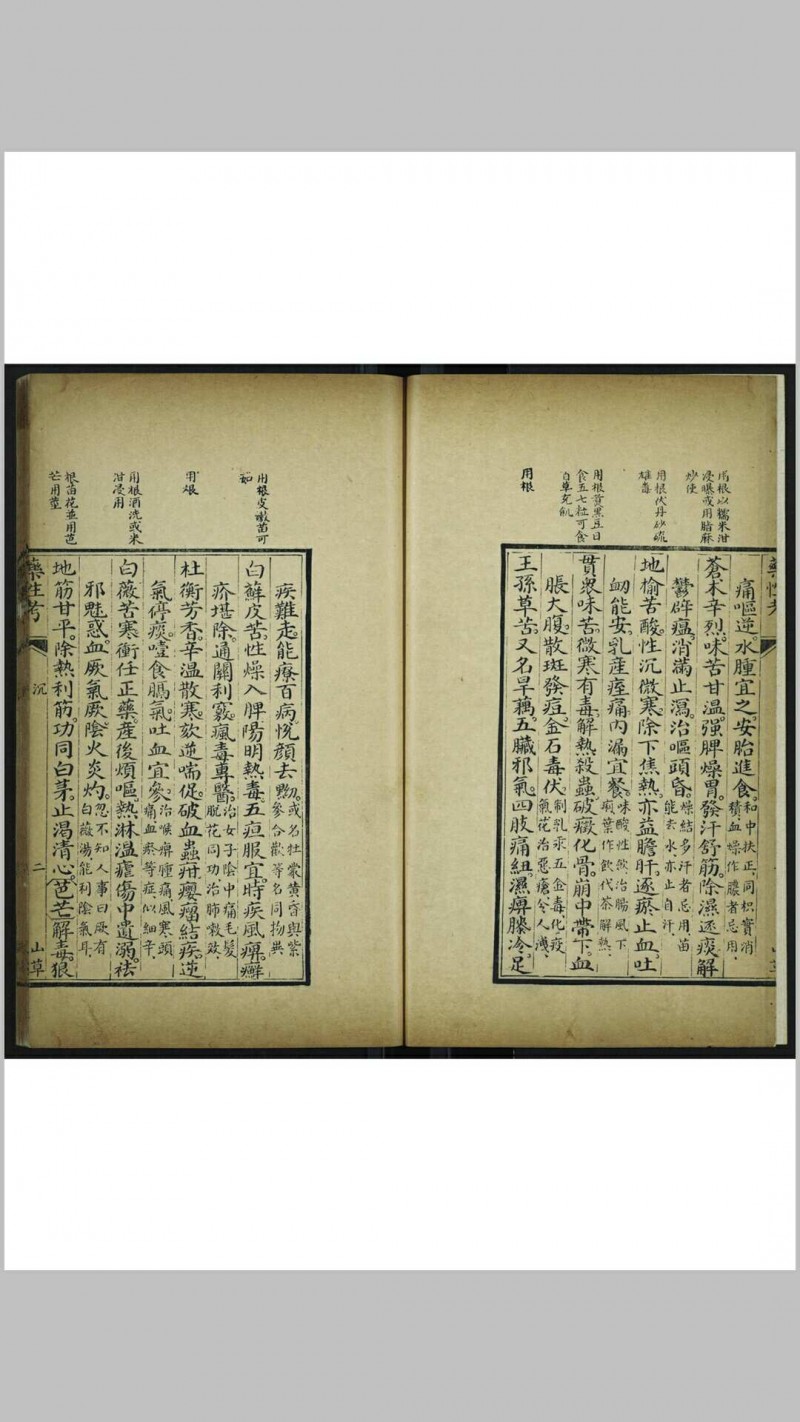 用根以糯米泔
浸曝或用脂麻
炒使
用根伏丹砂硫
雄毒
用根黃黑豆日
食五七粒可食
百草充飢
用根
痛嘔逆。水腫宜之。安胎進食。和中扶正同枳實消
積血燥作膿者忌用。
蒼朮辛烈。味苦甘溫。强脾燥胃。發汗舒筋。除濕逐痰解
鬱辟瘟。消滿止瀉。治嘔頭昏。燥結多汗者忌用苗
能去水亦止自汗。
地榆苦酸。性沉微寒。除下焦熱。亦益膽肝。逐瘀止血。吐
衂能安。乳産痓痛。內漏宜餐。味酸性歛治腸風下
痢葉作飲代茶解熱。
貫衆味苦。微寒有毒。解熱殺蟲。破癥化骨。崩中帶下。血
脹大腹。散斑發痘。金石毒伏。制乳汞五金毒化疫
氣花治惡瘡令人洩。
王孫草苦。又名旱藕。五臟邪氣。四肢痛紐。濕痹。冷足
用根皮嫩苗可
茹
用根
用根酒洗或米
泔浸用
根苗花並用芭
芒用莖
疾難走。能療百病。悅顔去黝。或名牡蒙黃昏與紫
參合歡等名同物異
白鮮皮苦。性燥入脾。陽明熱毒。五疸服宜。時疾風痹。癬
疥堪除。通關利竅。瘋毒專醫。治女子陰中痛毛髮
脫花同功治肺嗽效。
杜衡芳香。辛溫散寒。欬逆喘促。破血蟲疳。癭瘤結疾。逆
氣停痰。噎食膈氣。吐血宜參。治喉痹腫痛風寒頭
痛血瘀等症似細辛。
白薇苦寒。衝任正藥。產後煩嘔。熱淋溫瘧。傷中遺溺。祛
邪魅惑。血厥氣厥。陰火炎灼。忽不知人事曰厥有
白薇湯能利陰氣耳。
藥性考
沉
二
山草
地筋甘平。除熱利筋。功同白茅。止渴清心。芭芒解毒。狼